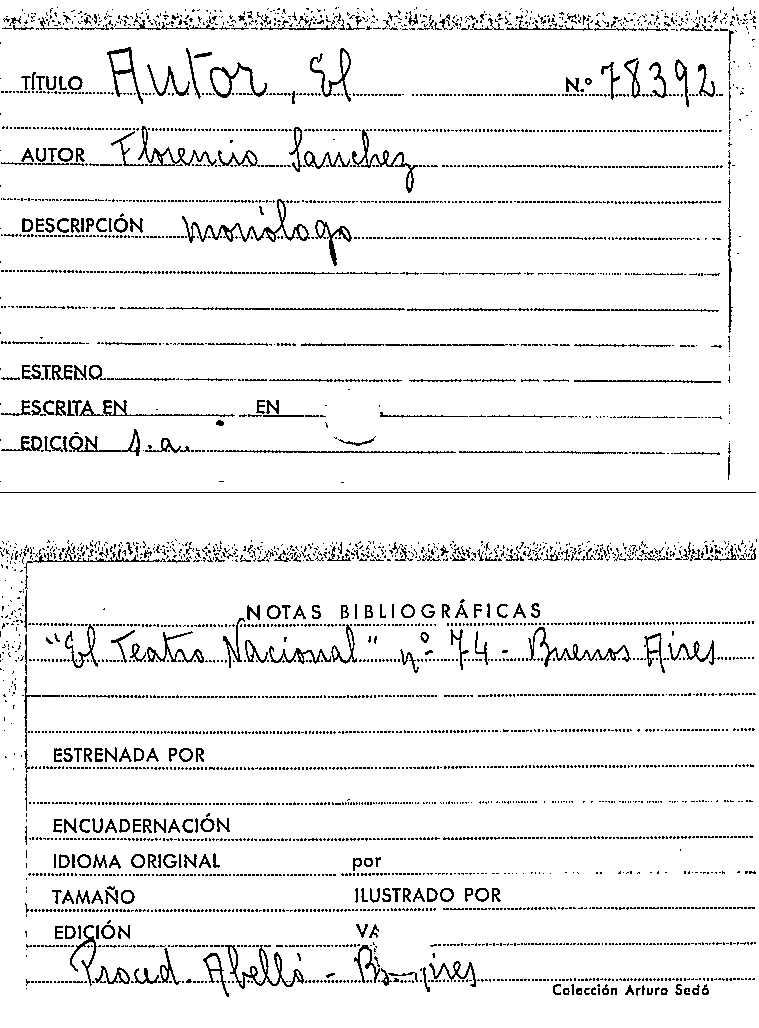 TÍTULO Autor, El N.º 78392
AUTOR Florencio Sanchez
DESCRIPCIÓN monólogo
ESTRENO
ESCRITA EN EN
EDICIÓN s.a.
NOTAS BIBLIOGRÁFICAS
"El Teatro Nacional" nº 74 - Buenos Aires
ESTRENADA POR
ENCUADERNACIÓN
IDIOMA ORIGINAL por
TAMAÑO ILUSTRADO POR
EDICIÓN VA
Proced. Abelló -
Colección Arturo Sedó